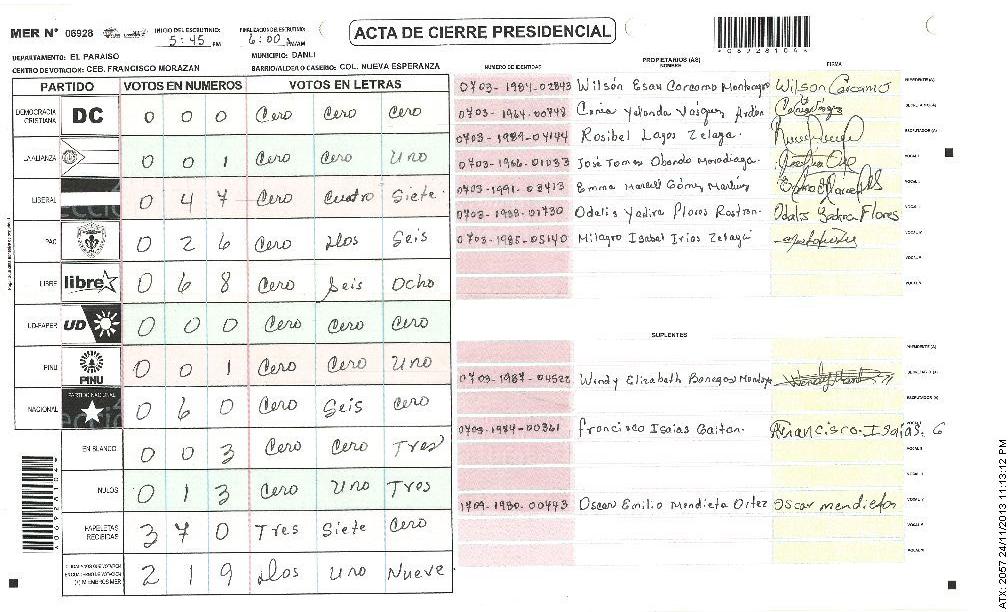 MER N° 06928
INICIO DEL ESCRUTINIO:
5:45 PM
FINALIZACION DE ESCRUTINIO:
6:00 PM/AM
ACTA DE CIERRE PRESIDENCIAL
DEPARTAMENTO: EL PARAISO
MUNICIPIO: DANLI
CENTRO DE VOTACION: CEB. FRANCISCO MORAZAN
BARRIO/ALDEA O CASERIO: COL. NUEVA ESPERANZA
PARTIDO VOTOS EN NUMEROS VOTOS EN LETRAS
DEMOCRACIA CRISTIANA DC 0 0 0 Cero Cero Cero
0 0 1 Cero Cero Uno
LIBERAL 0 4 7 Cero Cuatro Siete
PAC 0 2 6 Cero Dos Seis
LIBRE libre 0 6 8 Cero Seis Ocho
UD-FAPER UD 0 0 0 Cero Cero Cero
PINU PINU 0 0 1 Cero Cero Uno
NACIONAL PARTIDO NACIONAL 0 6 0 Cero Seis Cero
EN BLANCO 0 0 3 Cero Cero Tres
NULOS 0 1 3 Cero Uno Tres
PAPELETAS RECIBIDAS 3 7 0 Tres Siete Cero
2 1 9 Dos Uno Nueve
NUMERO DE IDENTIDAD
PROPIETARIOS (AS)
NOMBRE
FIRMA
0703-1984-02843 Wilson Esau Carcamo Wilson Carcamo
0703-1964-00748 Yolanda Vasquez
0703-1989-04144 Rosibel Lagos Zelaya
0703-1966-01033 José Tomas Obando
0703-1991-03413 Emma Gómez
0703-1988-01730 Odalis Yadira Flores Rostran Odalis Yadira Flores
0703-1985-05140 Milagro Isabel Irias Zelaya
SUPLENTES
0703-1987-04522 Wendy Elizabeth
0703-1984-00361 Francisco Isaias Gaitan Francisco Isaias. G
1709-1980-00443 Oscar Emilio Mendieta Ortez Oscar mendieta
ATX: 2057 24/11/2013 11:13:12 PM